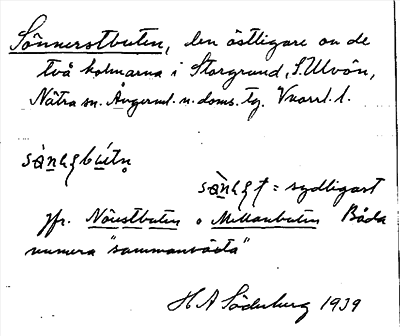 Sönnerstbuten, den östligare av de
två holmarna i Storgrund, S. Ulvön,
Nätra sn. Ångerml. n. doms. tg. Vnorrl. l.
sä̀nɐʂbútn̥
= sydligast
jfr. Nörestbuten o Mellanbuten Båda
numera "sammanväxta"
H A Söderberg 1939